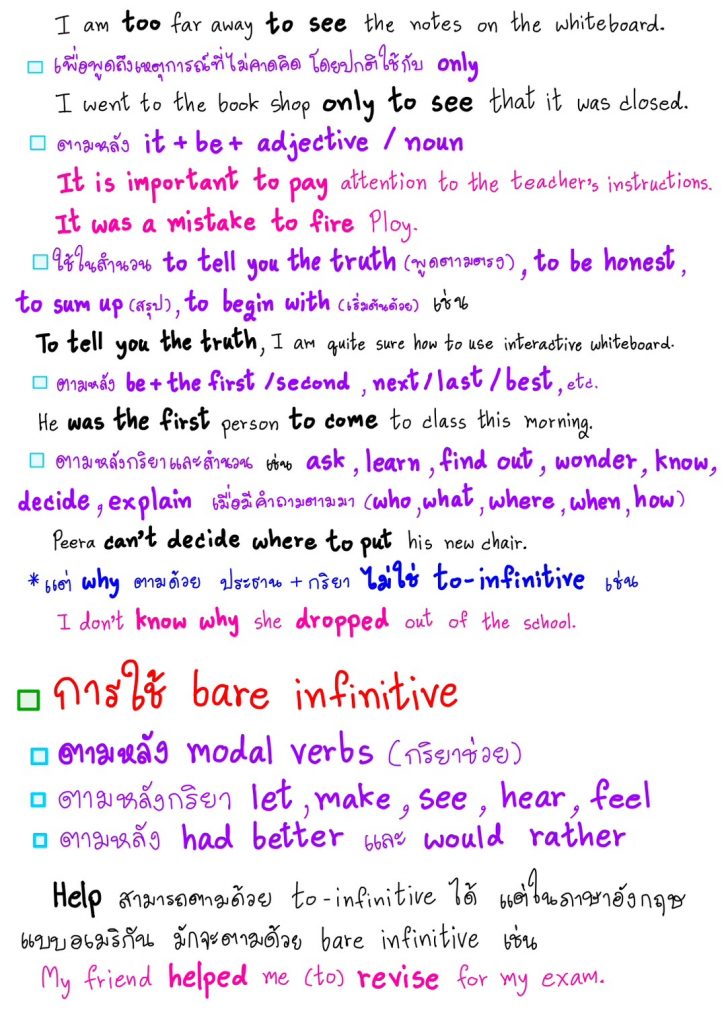 I am too far away to see the notes on the whiteboard.
เพื่อพูดถึงเหตุการณ์ที่ไม่คาดคิด โดยปกติใช้กับ only
I went to the book shop only to see that it was closed.
ตามหลัง it + be + adjective / noun
It is important to pay attention to the teacher's instructions.
It was a mistake to fire Ploy.
ใช้ในสำนวน to tell you the truth (พูดตามตรง), to be honest,
to sum up (สรุป), to begin with (เริ่มต้นด้วย) เช่น
To tell you the truth, I am quite sure how to use interactive whiteboard.
ตามหลัง be + the first / second, next / last / best, etc.
He was the first person to come to class this morning.
ตามหลังกริยาและสำนวน เช่น ask, learn, find out, wonder, know,
decide, explain เมื่อมีคำถามตามมา (who, what, where, when, how)
Peera can't decide where to put his new chair.
*แต่ why ตามด้วย ประธาน + กริยา ไม่ใช่ to-infinitive เช่น
I don't know why she dropped out of the school.
การใช้ bare infinitive
ตามหลัง modal verbs (กริยาช่วย)
ตามหลังกริยา let, make, see, hear, feel
ตามหลัง had better และ would rather
Help สามารถตามด้วย to-infinitive ได้ แต่ในภาษาอังกฤษ
แบบอเมริกัน มักจะตามด้วย bare infinitive เช่น
My friend helped me (to) revise for my exam.